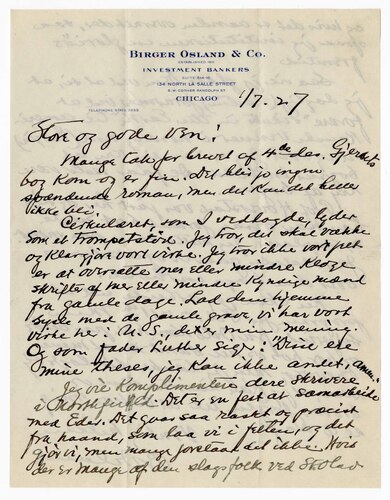 BIRGER OSLAND & CO.
ESTABLISHED 1911
INVESTMENT BANKERS
134 NORTH LA SALLE STREET
S.W. CORNER RANDOLPH ST.
CHICAGO
TELEPHONE STATE
1/7.27
Store og gode Ven!
Mange tak for brevet af 4de des. Gjersets
bog kom og er fin. Det blir jo ingen
spændende roman, men det kan det heller
ikke bli.
Cirkularet, som I vedlagde, lyder
som et trompetstöd. Jeg tror, det skal vække
og klargjöre vort virke. Jeg tror ikke vort felt
er at oversætte mer eller mindre kloge
skrifter af mer eller mindre kyndige mænd
fra gamle dage. Lad dem hjemme
sysle med de gamle grave, vi har vort
virke her i U.S., det er min mening.
Og som fader Luther siger: "Disse ere
mine theses, jeg kan ikke andet, amen."
Jeg vil komplimentere dere skrivere
i Northfield. Det er en fest at samarbeide
med Eder. Det gaar saa raskt og præcist
fra haand, som laa vi i felten, og det
gjör vi, men mange foretaar det ikke. Hvis
der er mange af den slags folk ved St. Olaf